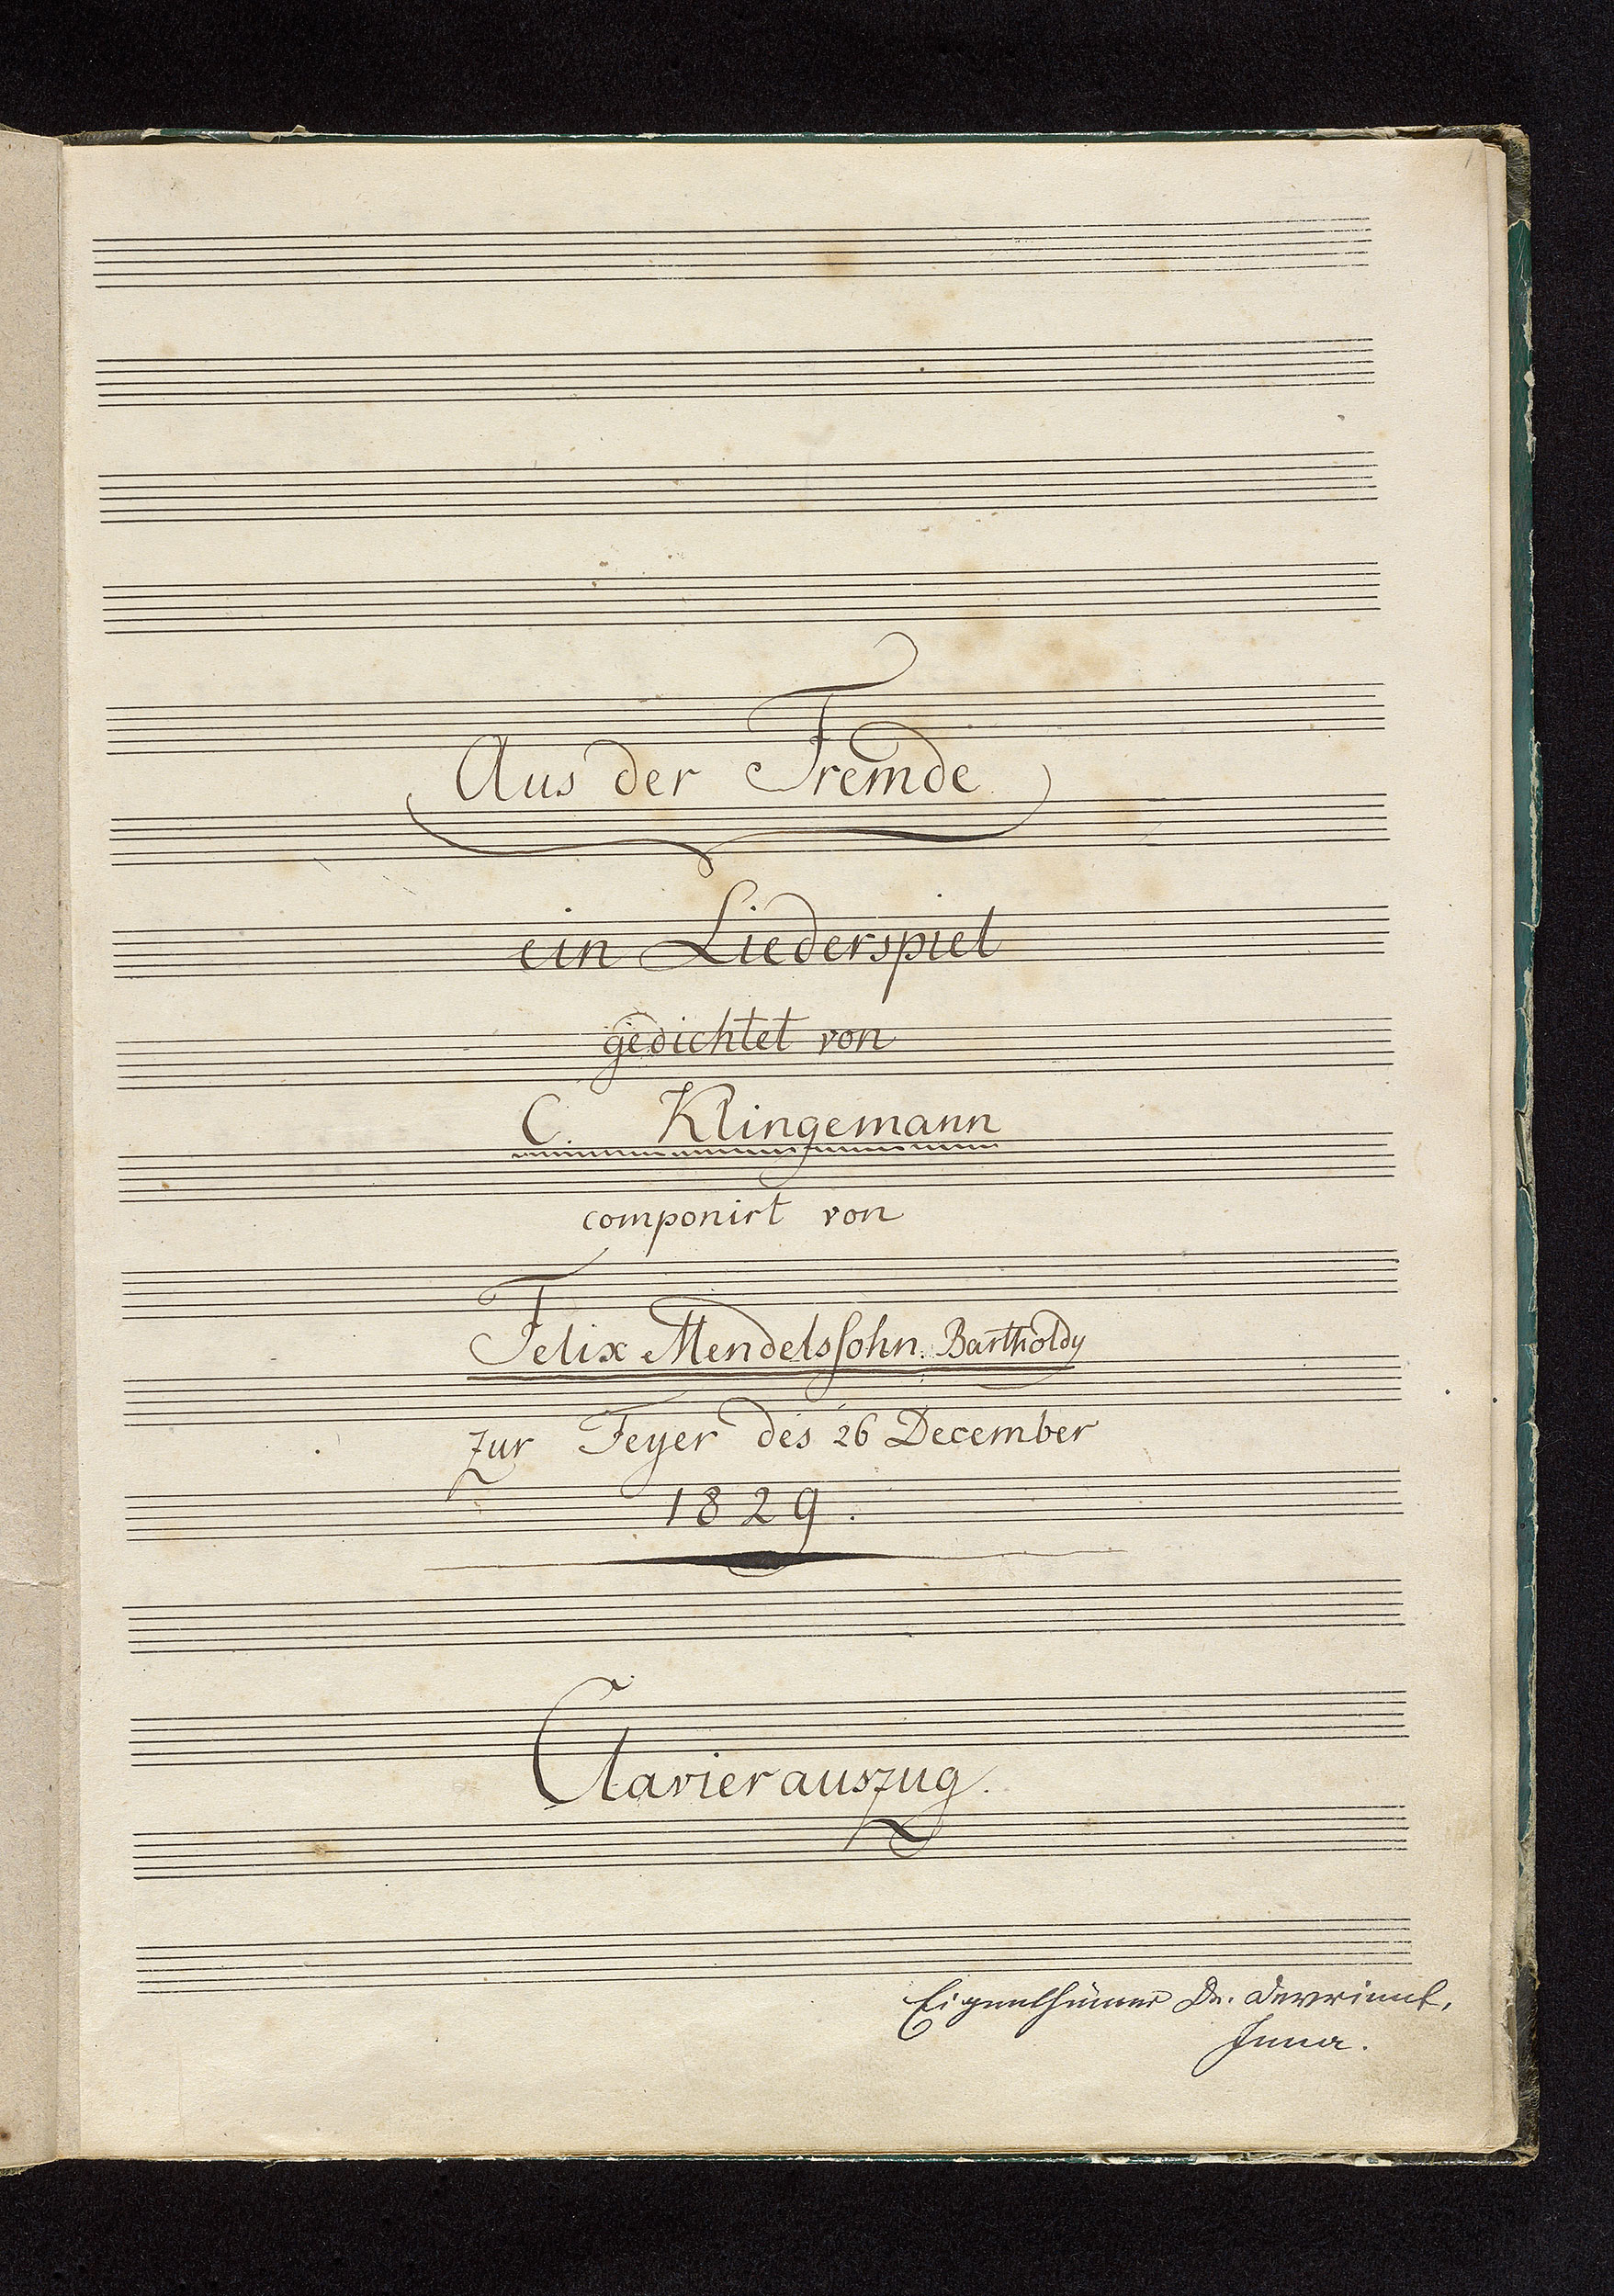 1
Aus der Fremde
ein Liederspiel
gedichtet von
C. Klingemann
componirt von
Felix Mendelssohn. Bartholdy
zur Feyer des 26 December
1829.
Clavierauszug.
Eigenthümer Dr. Devrient.
Jena.